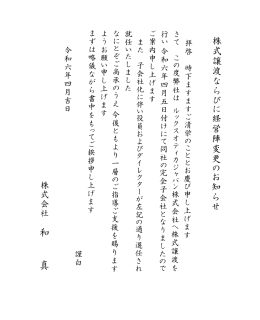 株式譲渡ならびに経営陣変更のお知らせ
拝啓　時下ますますご清栄のこととお慶び申し上げます
さて　この度弊社は　ルックスオティカジャパン株式会社へ株式譲渡を
行い　令和六年四月五日付けにて同社の完全子会社となりましたので
ご案内申し上げます
また　子会社化に伴い役員およびダイレクターが左記の通り選任され
就任いたしました
なにとぞご高承のうえ　今後ともより一層のご指導ご支援を賜ります
ようお願い申し上げます
まずは略儀ながら書中をもってご挨拶申し上げます
謹白
令和六年四月吉日
株式会社　和真